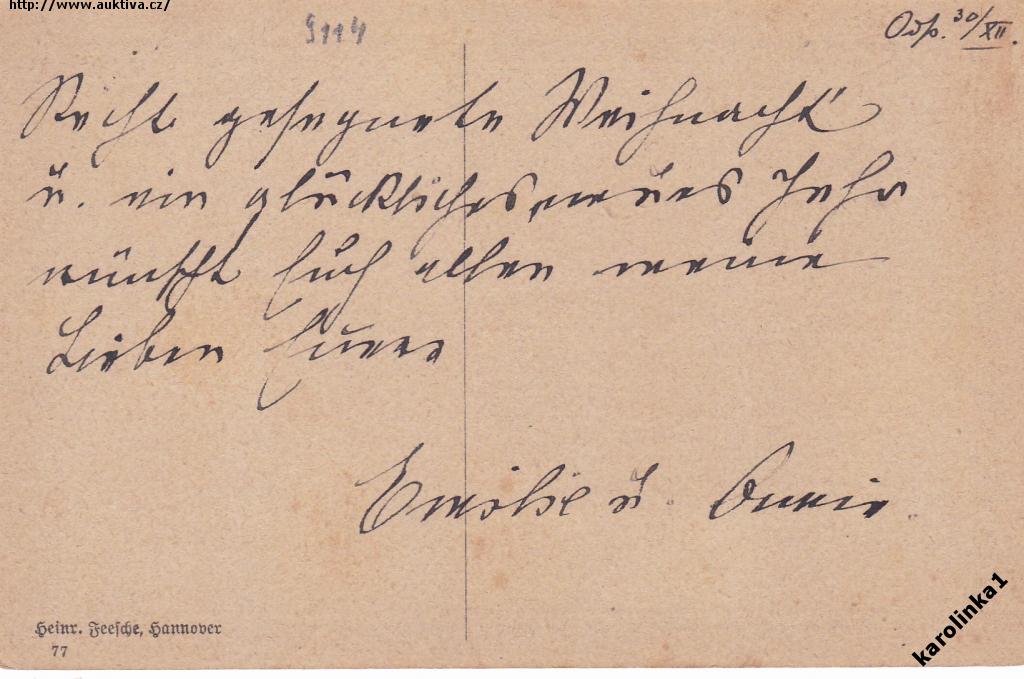 http://www.auktiva.cz/
9114
Odp. 30/XII.
Recht gesegnete Weihnacht
u. ein glückliches neues Jahr
wünscht Euch allen meine
Lieben Euere
Emilie u. Annie
Heinr. Feesche, Hannover
77
karolinka1